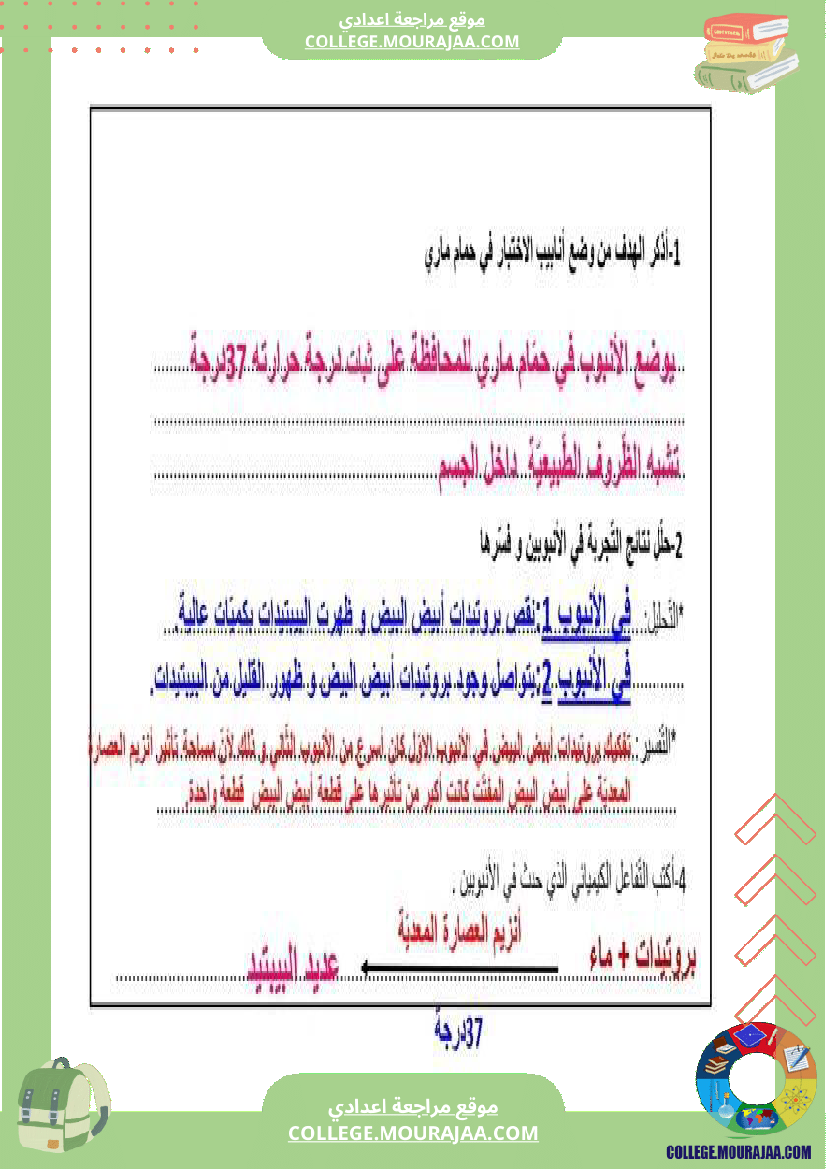 موقع مراجعة اعدادي
COLLEGE.MOURAJAA.COM
1-أذكر الهدف من وضع أنابيب الاختبار في حمام ماري
يوضع الأنبوب في حمّام ماري للمحافظة على ثبات درجة حرارته 37درجة
تشبه الظّروف الطّبيعيّة داخل الجسم
2-حلّل نتائج التّجربة في الأنبوبين و فسّرها
*التّحليل: في الأنبوب 1:نقص بروتيدات أبيض البيض و ظهرت البيبتيدات بكميّات عالية.
في الأنبوب 2:يتواصل وجود بروتيدات أبيض البيض و ظهور القليل من البيبتيدات.
*التّفسير: تفكيك بروتيدات أبيض البيض في الأنبوب الأوّل كان أسرع من الأنبوب الثّاني و ذلك لأنّ مساحة تأثير أنزيم العصارة
المعديّة على أبيض البيض المفتّت كانت أكبر من تأثيرها على قطعة أبيض البيض قطعة واحدة.
4-أكتب التّفاعل الكيميائي الذي حدث في الأنبوبين .
أنزيم العصارة المعديّة
بروتيدات + ماء
عديد البيبتيد
37درجة
موقع مراجعة اعدادي
COLLEGE.MOURAJAA.COM
COLLEGE.MOURAJAA.COM